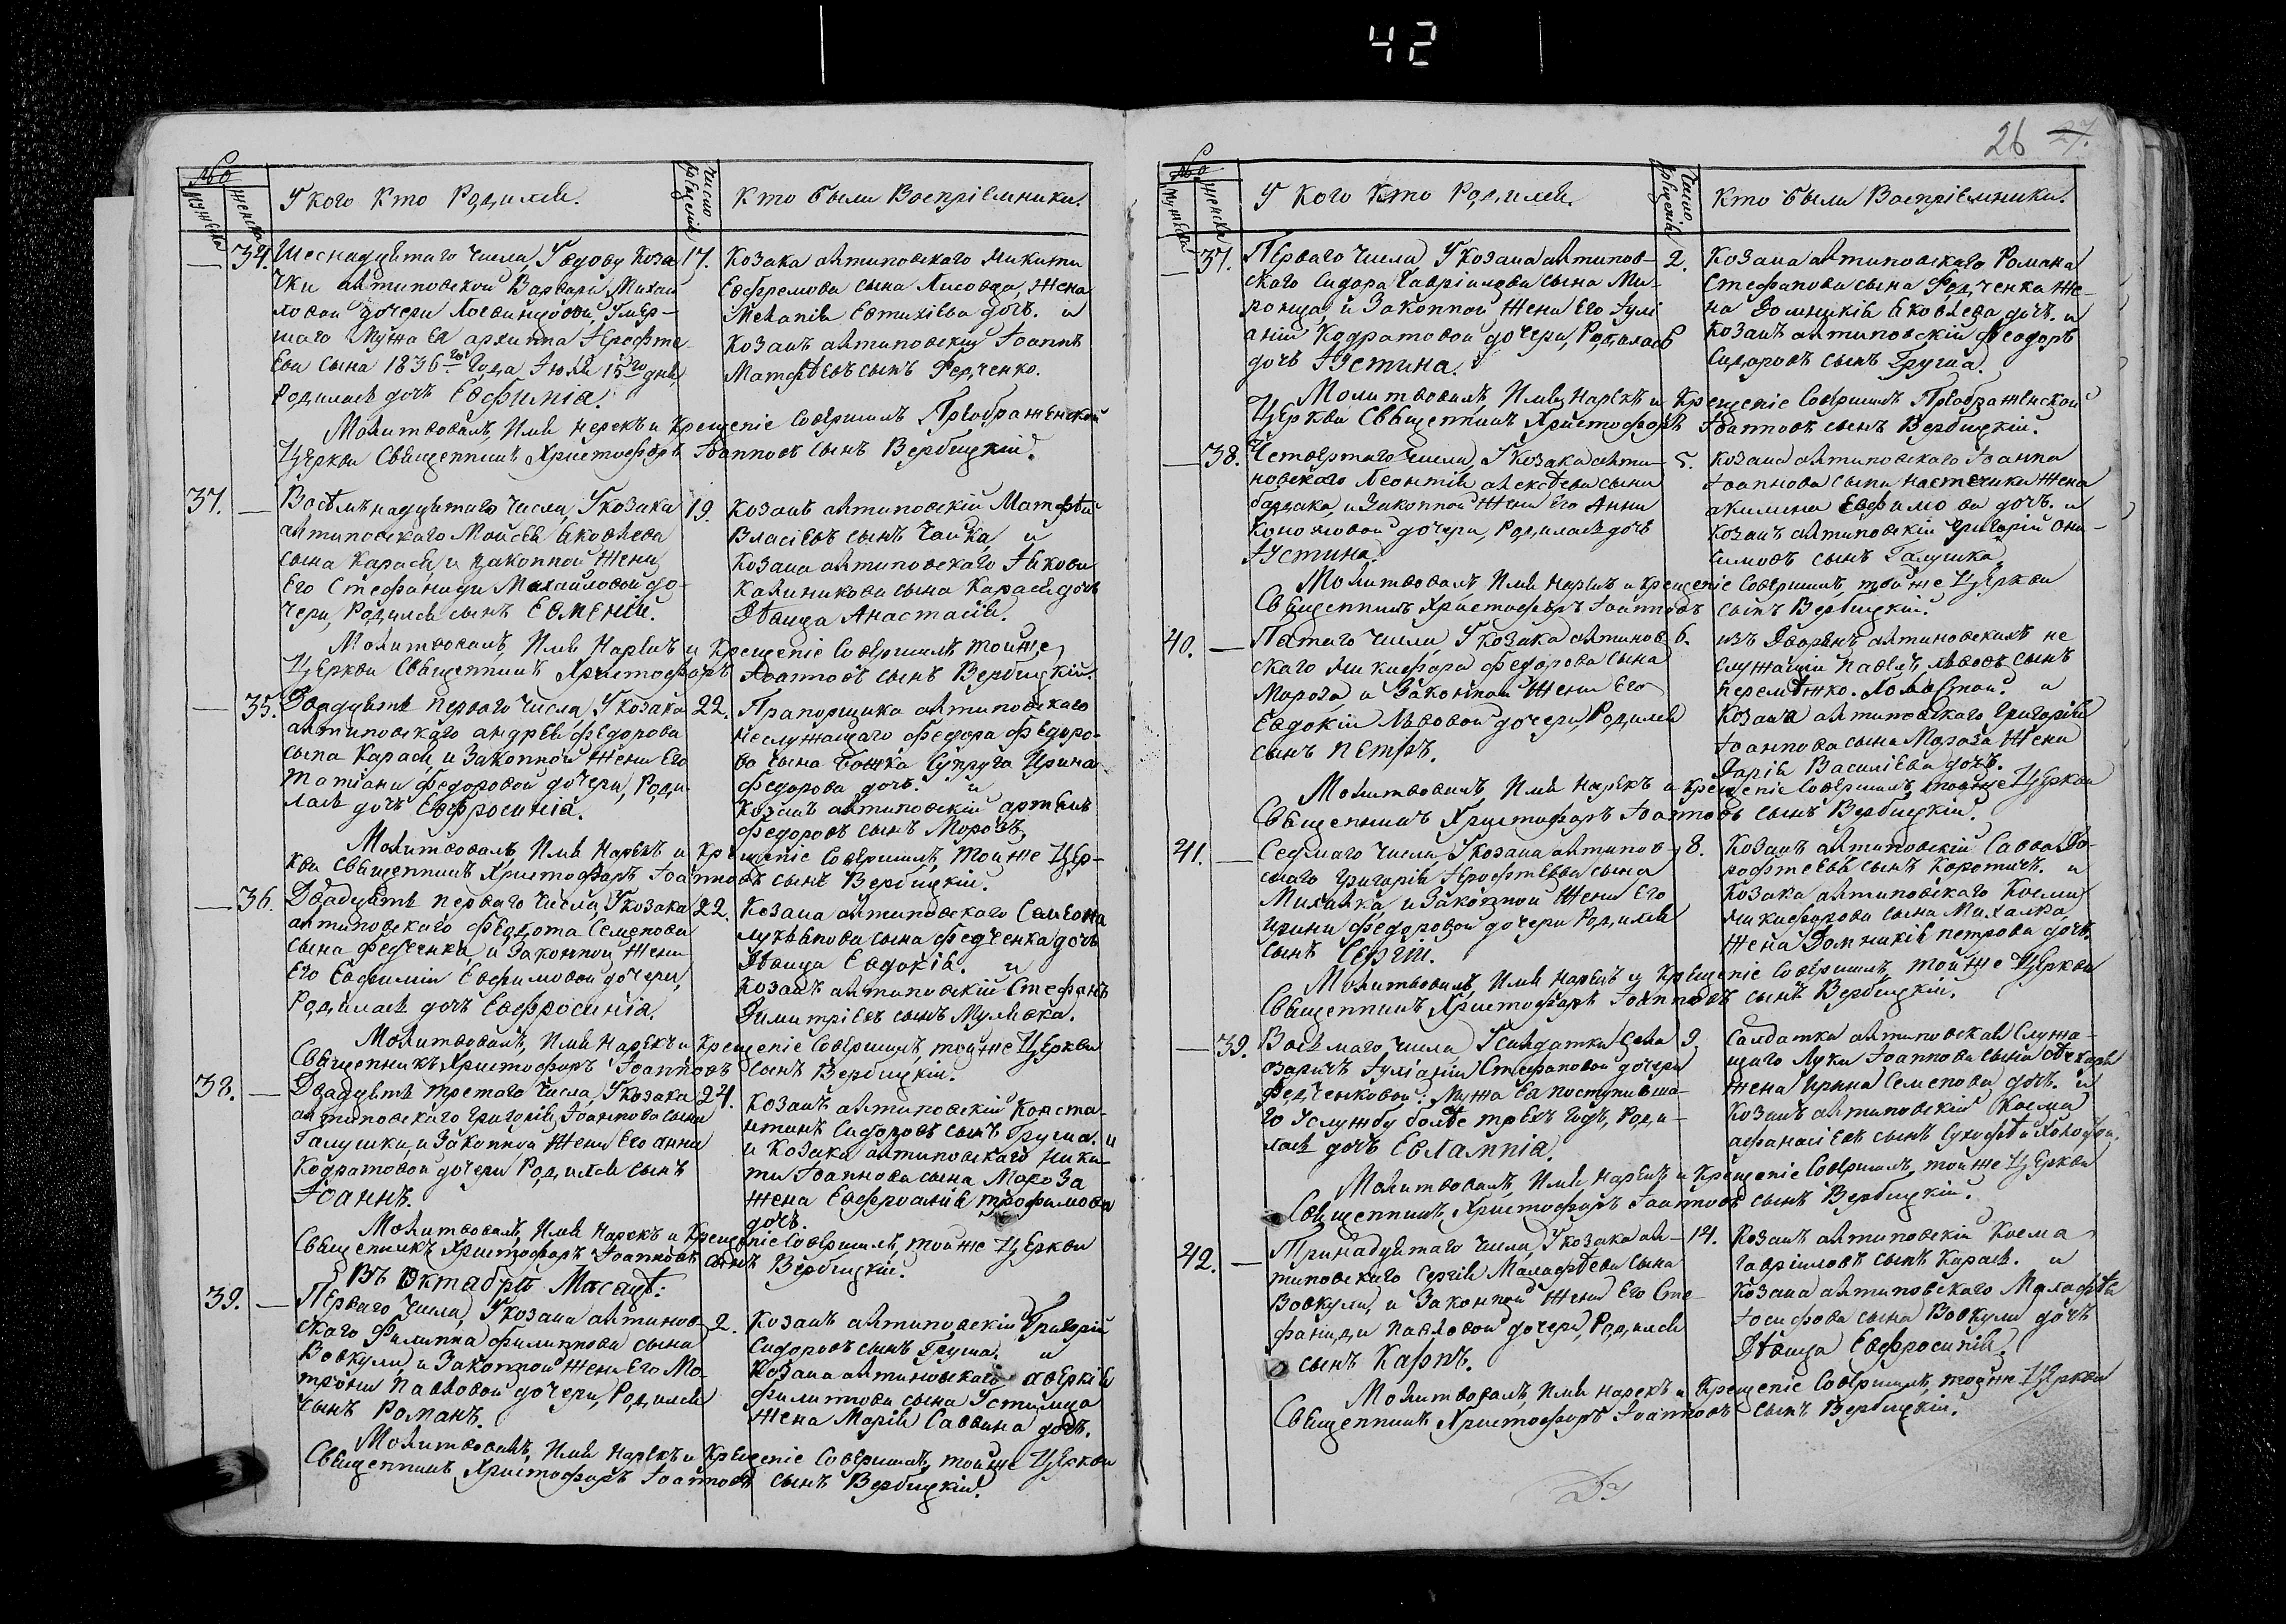 42
№
Мужска
Женска
У кого кто Родился.
Число крещенія
Кто были Воспріемники.
34. Шеснадцятаго числа, У вдову Коза
17.
чки Антиповской Варвари Михай
ловой дочери умер-
шаго Мужа Ея архиппа Ієрофте
ева сына 1836го года Іюля 15го дня
Родилась дочь Евфимія.
Козака антиповскаго Никити
Евфремова сына Лисовца, Жена
Меланія Евтихіева дочь. и
Козакъ антиповскій Іоаннъ
Матфѣевъ сынъ Федченко.
Молитвовалъ, Имя нерекъ и Крещеніе Совершилъ Преображенской
Церкви Священникъ Христофоръ Іоанновъ сынъ Вербицкій.
37. — Восѣмнадцятаго числа, У козака
19.
антиповскаго Мойсея Яковлева
сына Карася, и законной Жени
Его Стефаниди Михайловой до-
чери, Родился сынъ Евменій.
Козакъ антиповскій Матфѣй
Власіевъ сынъ Чайка, и
Козака антиповскаго Якова
Калиникова сына Карася дочь
Дѣвица Анастасія.
Молитвовалъ, Имя Нарекъ и Крещеніе Совершилъ тойже
Церкви Священникъ Христофоръ Іоанновъ сынъ Вербицкій.
— 35. Двадцять перваго числа У козака
22.
антиповскаго андрея федорова
сына Карася, и Законной Жени Его
Татіани федоровой дочери, Роди
лась дочь Евфросинія.
Прапорщика антиповскаго
неслужащаго федора федоро-
ва сына Супруга Ирина
федорова дочь. и
Козакъ антиповскій артемъ
федоровъ сынъ Морозъ.
Молитвовалъ, Имя Нарекъ и Крещеніе Совершилъ, Тойже Цер-
кви Священникъ Христофоръ Іоанновъ сынъ Вербицкій.
— 36. Двадцять перваго числа, У козака
22.
антиповскаго федота Семенова
сына федченка, и Законной Жени
Его Евфиміи Евфимовой дочери,
Родилась дочь Евфросинія.
Козака антиповскаго Самсона
Лукьянова сына Федченка дочь
Дѣвица Евдокія. и
Козакъ антиповскій Стефанъ
Димитріевъ сынъ Мулявка.
Молитвовалъ, Имя Нарекъ и Крещеніе Совершилъ, тойже Церкви
Священникъ Христофоръ Іоанновъ сынъ Вербицкій.
38. — Двадцять третаго числа, У козака
24.
антиповскаго Григорія Іоаннова сына
Галушки, и Законной Жени Его анни
Кодратовой дочери Родился сынъ
Іоаннъ.
Козакъ антиповскій Конста-
нтинъ Сидоровъ сынъ Груша. и
и Козака антиповскаго Ники-
ти Іоаннова сына Мороза
Жена Евфросинія трофимова
дочь.
Молитвовалъ, Имя Нарекъ и Крещеніе Совершилъ, тойже Церкви
Священникъ Христофоръ Іоанновъ сынъ Вербицкій.
Въ Октабрѣ Мѣсацѣ:
39. — Перваго числа, У козака антипов-
2.
скаго Филиппа филиппова сына
Вовкули и Законной Жени Его Мо-
трони Павловой дочери, Родился
сынъ Романъ.
Козакъ антиповскій Григорій
Сидоровъ сынъ Груша. и
Козака антиповскаго аверкія
филиппова сына Устимца
Жена Марія Саввина дочь.
Молитвовалъ, Имя Нарекъ и Крещеніе Совершилъ, тойже Церкви
Священникъ Христофоръ Іоанновъ сынъ Вербицкій.
26 27.
№
Мужска
Женска
У Кого Кто Родился.
Число крещенія
Кто были Воспріемники.
— 37. Перваго числа, У козака антипов-
2.
ского Сидора Гавріилова сына Ми-
ронца, и Законной Жени Его Іулі
аніи Кодратовой дочери, Родилась
дочь Іустина.
Козака антиповскаго Романа
Стефанова сына Федченка Же-
на Домникія Яковлева дочь. и
Козакъ антиповскій Феодоръ
Сидоровъ сынъ Груша.
Молитвовалъ, Имя Нарекъ и Крещеніе Совершилъ Преображенской
Церкви Священникъ Христофоръ Іоанновъ сынъ Вербицкій.
— 38. Четвертаго числа, У козака анти-
5.
повскаго Леонтія алексѣева сына
бардака, и Законной Жени Его Анни
Кононовой дочери, Родилась дочь
Іустина.
Козака антиповскаго Іоанна
Іоаннова сына Жена
акилина Евфимова дочь. и
Козакъ антиповскій Григорій Они-
симовъ сынъ Галушка.
Молитвовалъ, Имя Нарекъ и Крещеніе Совершилъ, тойже Церкви
Священникъ Христофоръ Іоанновъ сынъ Вербицкій.
40. — Пятаго числа, У козака антипов
6.
скаго Никифора федорова сына
Мороза, и Законной Жени Его
Евдокіи Львовой дочери, Родился
сынъ Петръ.
изъ Дворянъ антиповскихъ не
служащій Павелъ Львовъ сынъ
и
Козака антиповскаго Григорія
Іоаннова сына Мороза Жена
Дарія Василіева дочь.
Молитвовалъ, Имя Нарекъ и Крещеніе Совершилъ, тойже Церкви
Священникъ Христофоръ Іоанновъ сынъ Вербицкій.
41. — Седмаго числа, У козака антипов-
8.
скаго Григорія Ієрофтеева сына
Михалка, и Законной Жени Его
Ирини федоровой дочери Родился
сынъ Сергій.
Козакъ антиповскій Савва До-
рофтеевъ сынъ Коротичъ. и
Козака антиповскаго Космы
Никифорова сына Михалка,
Жена Домникія петрова дочь.
Молитвовалъ, Имя Нарекъ и Крещеніе Совершилъ, тойже Церкви
Священникъ Христофоръ Іоанновъ сынъ Вербицкій.
— 39. Восьмаго числа, У Салдатки Села
9.
Іуліаніи Стефановой дочери
Федченковой: Мужа Ея поступивша-
го Услужбу болѣе трехъ годъ, Роди-
лась дочь Евлампія.
Салдатка антиповская Служа-
щаго Луки Іоаннова сына
Жена Ирина Семенова дочь. и
Козакъ антиповскій Косма
афанасіевъ сынъ
Молитвовалъ, Имя Нарекъ и Крещеніе Совершилъ, тойже Церкви
Священникъ Христофоръ Іоанновъ сынъ Вербицкій.
42. — Принадцятаго числа, У козака ан-
14.
типовскаго Сергія Малафѣева сына
Вовкули, и Законной Жени Его Сте-
фаниди Павловой дочери, Родился
сынъ Карпъ.
Козакъ антиповскій Косма
Гавріиловъ сынъ Карась. и
Козака антиповскаго Малафѣя
Іосифова сына Вовкули дочь
Дѣвица Евфросинія.
Молитвовалъ, Имя нарекъ и Крещеніе Совершилъ, тойже Церкви
Священникъ Христофоръ Іоанновъ сынъ Вербицкій.